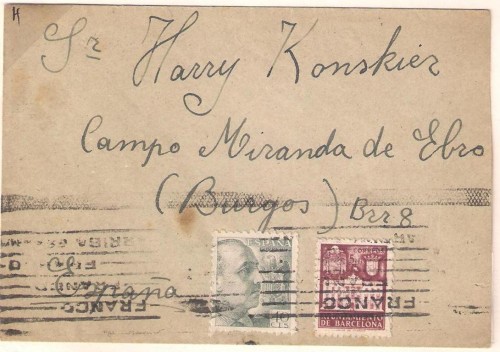 H
Sr Harry Konskier
Campo Miranda de Ebro
(Burgos) Brr 8
España
ESPAÑA
10
CTS
CORREOS
AYUNTAMIENTO
DE BARCELONA
FRANCO
FRANCO
ARRIBA